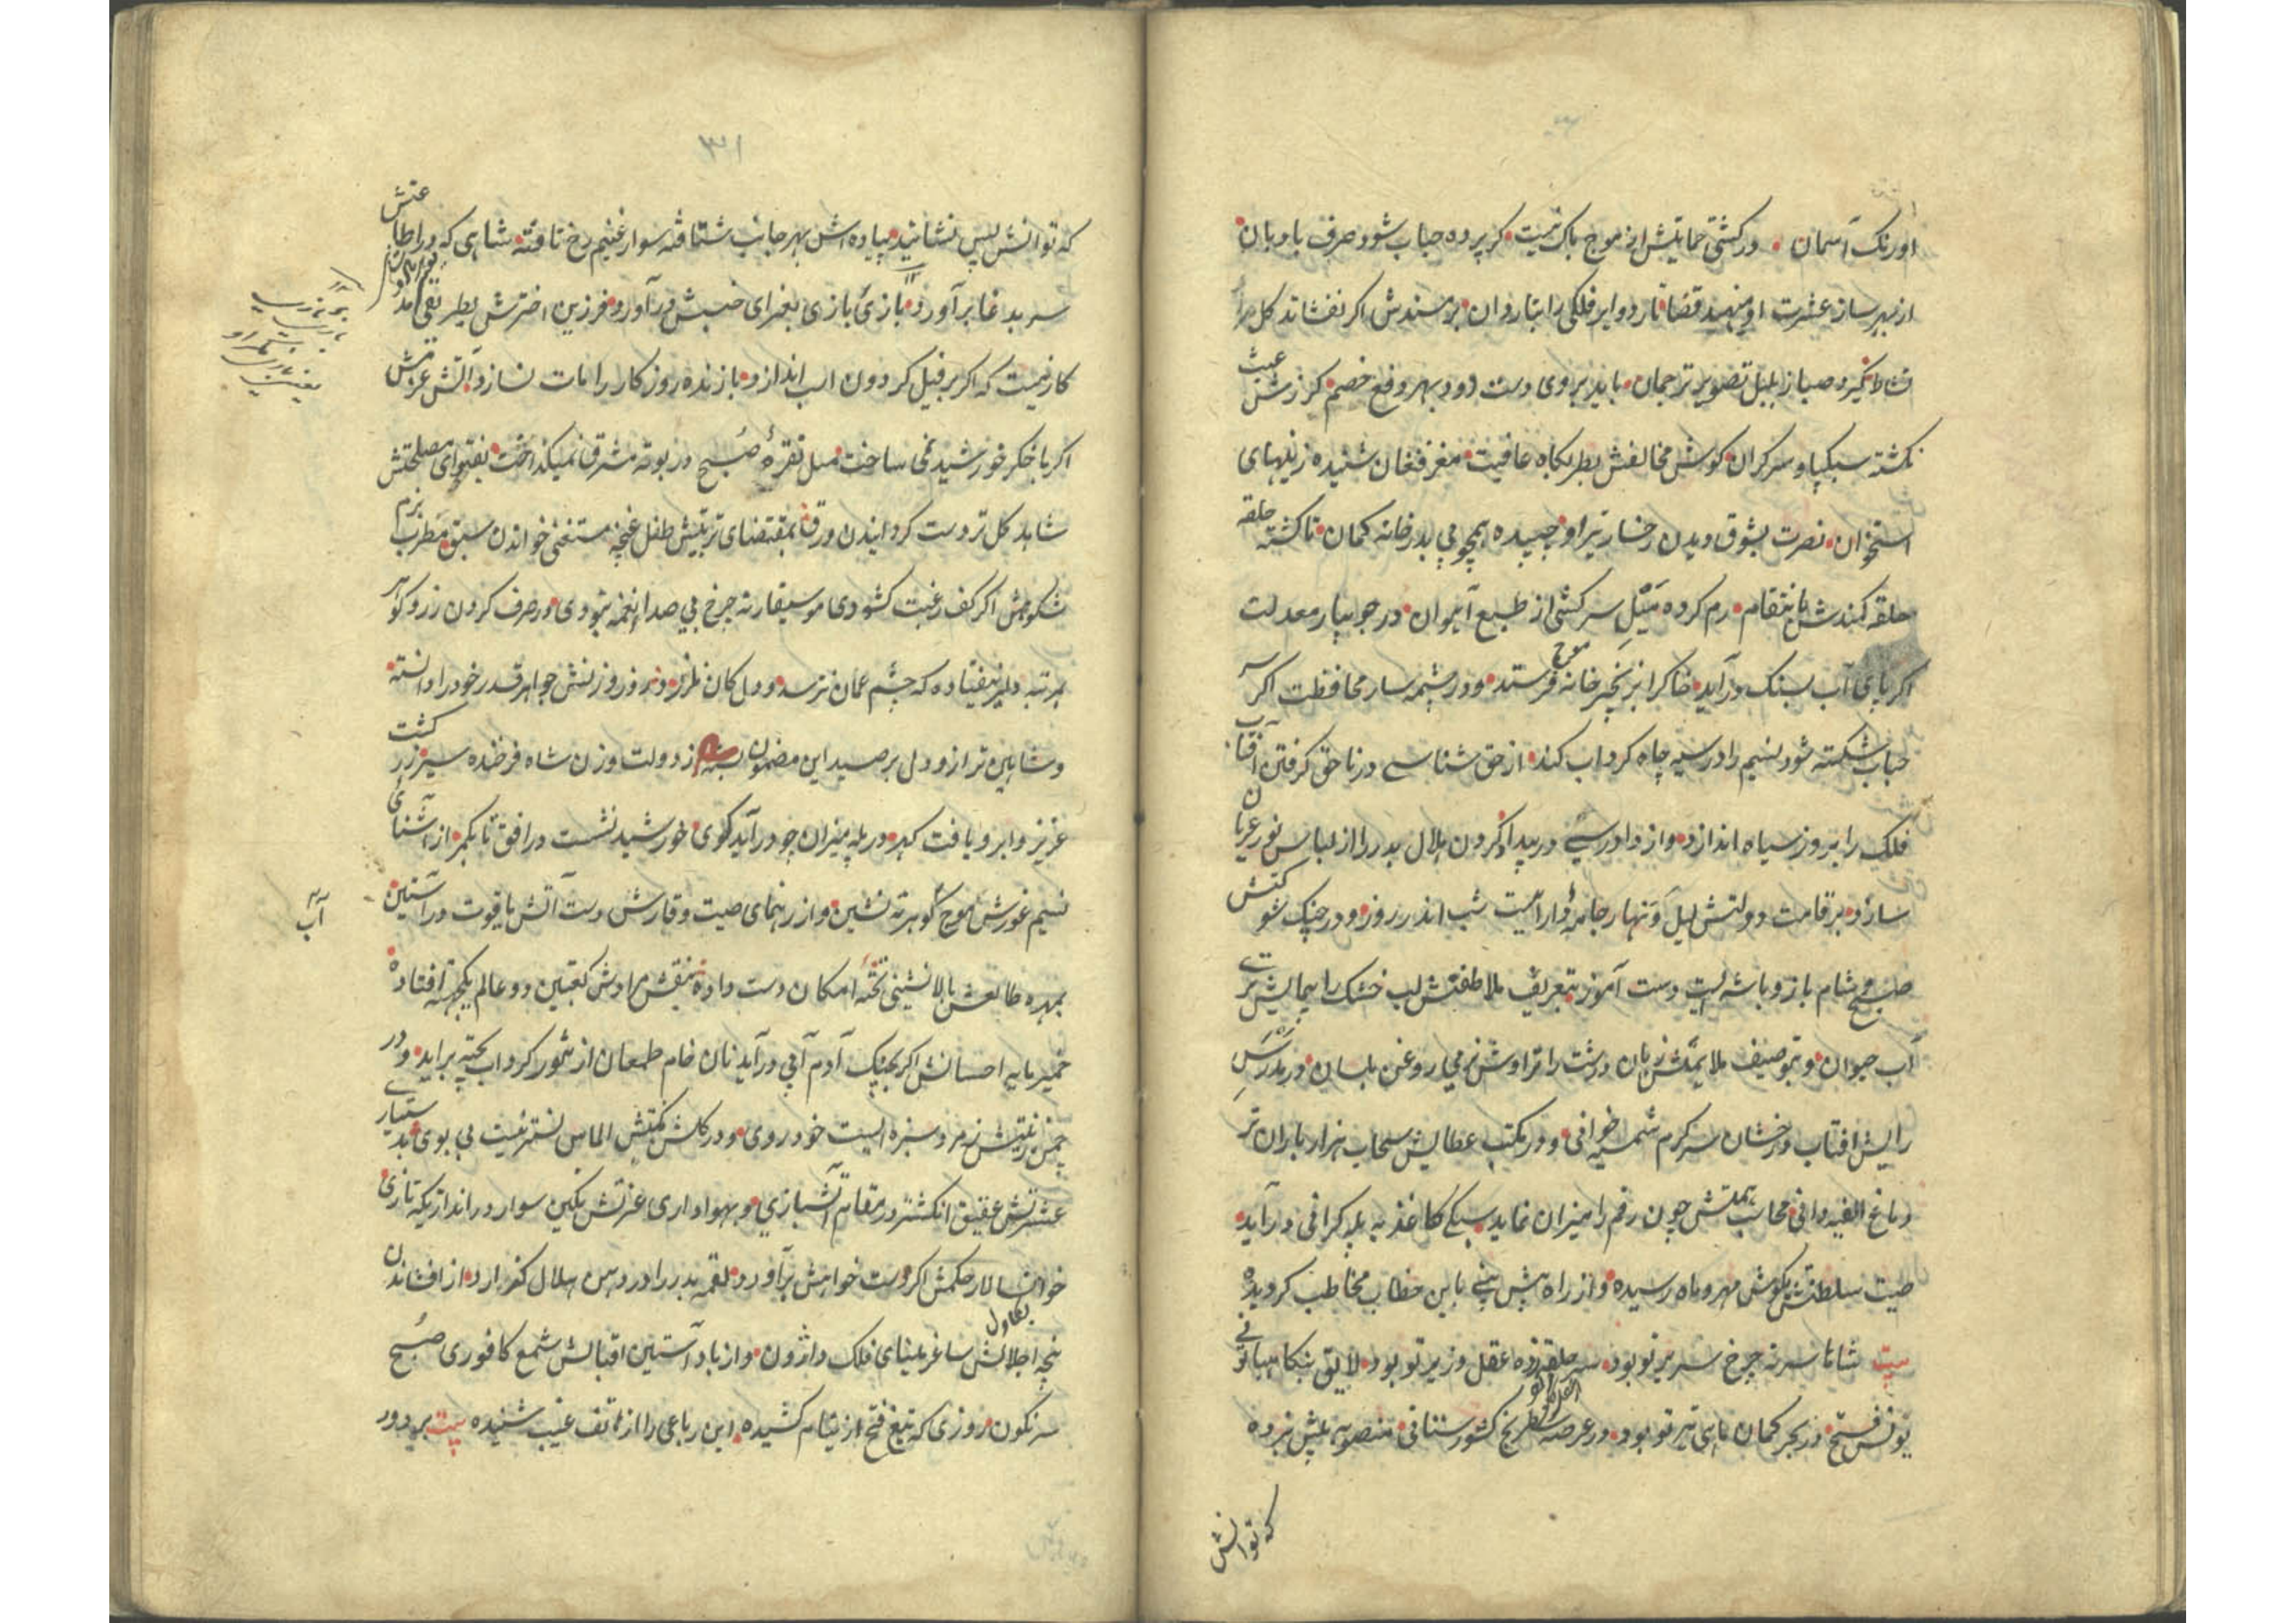 اورنک آسمان در کشتی حمایتش از موج باک نیست کر پرده حباب شود صرف بادبان
از بهر ساز عشرت او مینهد قضا تار دوایر فلکی را بتار وان بر مسندش اکر نفشاند کل مراد
نشاط نکیرد صبا ز بلبل تصویر ترجمان باید بروی دست دود بهر دفع خصم کرزش عبث
نکشته سبکپا و سرکران کوش مخالفش بطربکاه عافیت مغز فغان شنیده ز نیهای
استخوان نصرت بشوق دیدن رخسار تیر او چسپیده همچو پی بدر خانه کمان تا کشته حلقه
حلقه کمندش بانتقام رم کرده میل سرکشی از طبع آهوان در جویبار معدلت
اکر پای آب بسنک درآید خاک را بزنجیرخانه موج فرستد و در چشمه سار محافظت اکر سر
حباب شکسته شود نسیم را در سیه چاه کرداب کند از حق شناسی در ناحق کرفتن آفتاب
فلک را بروز سیاه اندازد و از دادرسی در پیدا کردن هلال بدر را از لباس نور عریان
سازد بر قامت دولتش لیل و نهار جامه وارایست شب اندر روز و در چنک شوکتش
صبح و شام باز و باشه ایست دست آموز بتعریف ملاطفتش لب خشک را پیمایش تری
آب حیوان و بتوصیف ملایمتش زبان درشت را تراوش نرمی روغن بلسان در مدرس
رایش افتاب درخشان سرکرم شمسیه خوانی و در مکتب عطایش سحاب هزار باران تر
دماغ الفیه دانی محاسب همتش چون رقم را میزان نماید سبکی کاغذ به پله کرانی درآید
صیت سلطنتش بکوش مهر و ماه رسیده و از راه پیش بینی باین خطاب مخاطب کردیده
بیت شاها سر نه چرخ سریر تو بود سر حلقه زده عقل وزیر تو بود لایق بنکاهبانی تو
یونس فتح در بحر کمان ماهی تیر تو بود در عرصه شطرنج کشورستانی منصوبه پیش نبرده
که توانش
٣١
که توانش پس نشانید پیاده اش بهر جانب شتافته سوار غنیم رخ تافته شاهی که در اطاعتش
سر بدغا برآورد بازئ بازی بغمرای خسبش درآورد و فرزین اخترش بطریقی آمد
کار نیست که اکر بر فیل کردون اسب اندازد بازنده روزکار را مات نسازد آتش عزمش
اکر با خکر خورشید نمی ساخت میل نقرهٔ صبح در بوته مشرق نمیکداخت بفتوای مصلحتش
شاهد کل تردست کردانیدن ورق بمقتضای تربیتش طفل غنچه مستغنی خواندن سبق مطرب بزم
شکوهش اکر کف رغبت کشودی موسیقار نه چرخ بی صدا نغمه نبودی در صرف کردن زر و کوهر
بمرتبه دلیر نیفتاده که چشم عمان نترسد و دل کان نلرزد در روز وزنش جواهر قدر خود را دانسته
و شاهین ترازو دل بر صید این مضمون بسته از دولت وزن شاه فرخنده سیر زر کشت
عزیز و ابرو یافت کهر در پله میزان چو درآید کوی خورشید نشست در افق تا بکمر از آشنای
نسیم غورش موج کوهر ته نشین و از رهنمای صیت وقارش دست آتش یاقوت در آستین
آب
بمهره طالعش بالانشینی تختهٔ امکان دست داده بنقش مرادش کعبتین دو عالم یکجهته افتاده
خمیرمایه احسانش اکر بچنک آدم آبی درآید نان خام طمعان از تنور کرداب پخته براید و در
چمن زینتش زمرد سبزه ایست خودروی و در کلشن نکهتش الماس نسترنیست بی بوی بدستیاری
عشرتش عقیق انکشتر در مقام آتشبازی و بهواداری عزتش نکین سوار در انداز یکه تازی
خوانسالار حکمش اکر دست خواهش برآورد لقمه بدر را در دهن هلال کذارد از افشاندن
بکاول
پنجه اجلالش ساغر مینای فلک واژون و از باد آستین اقبالش شمع کافوری صبح
سرنکون روزی که تیغ فتح از نیام کشیده این رباعی را از هاتف غیب شنیده بیت بر دور